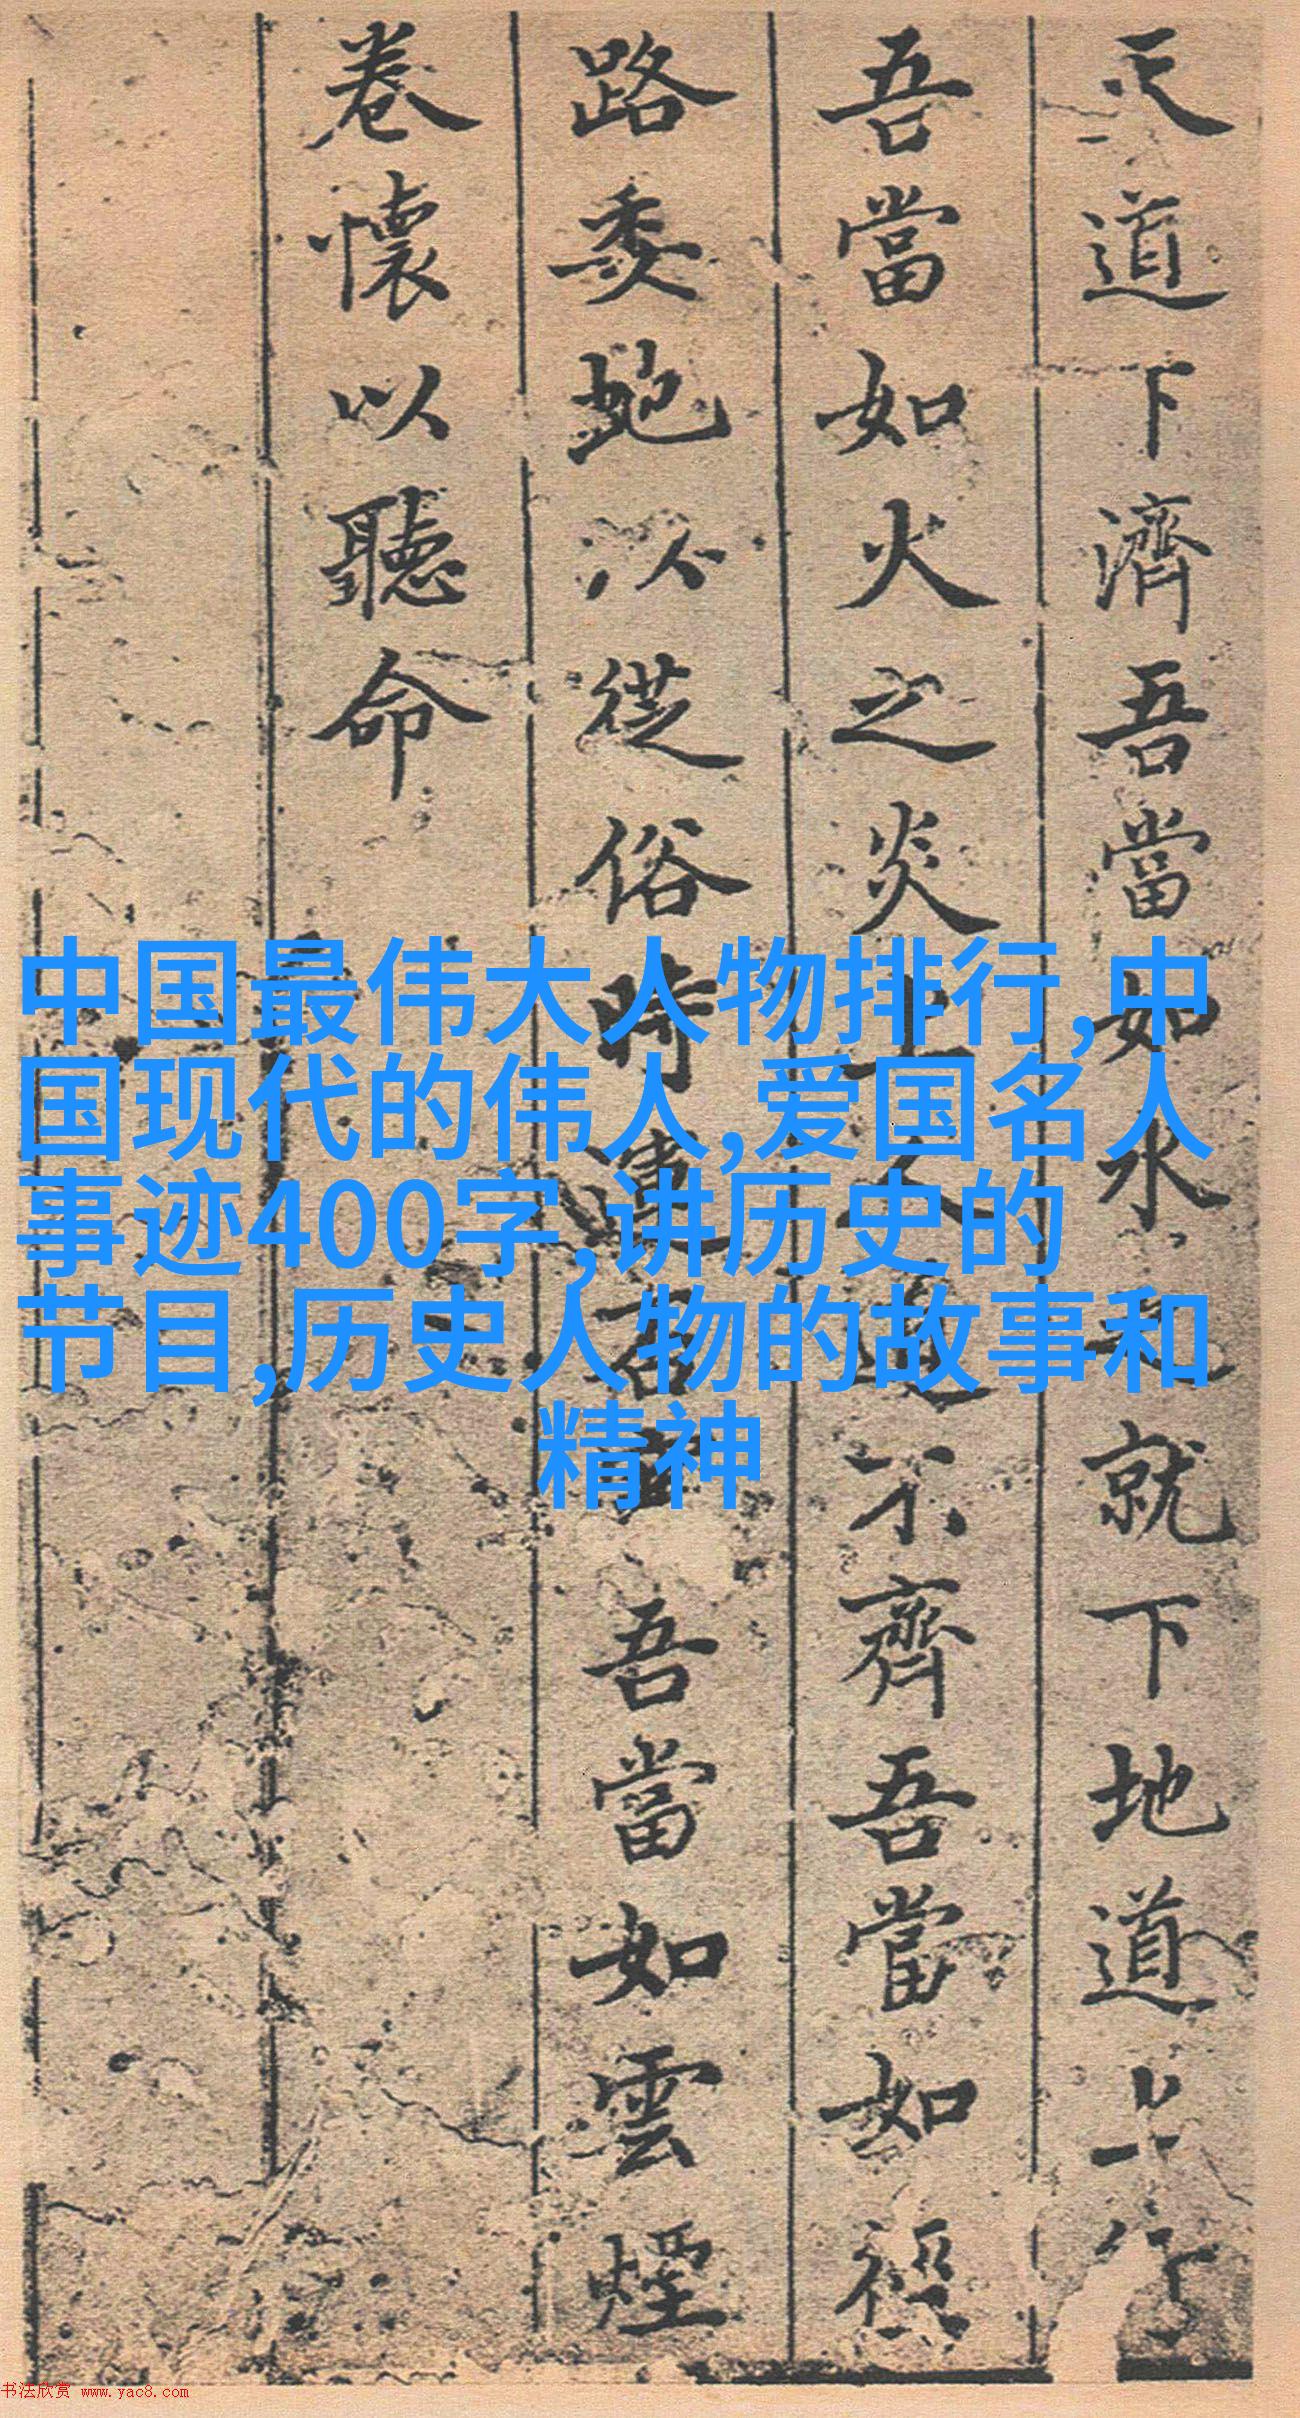 天道下濟吾當如水就下地道上行
吾當如火之炎上人道不齊吾當如
路委虵以從俗時吾當如雲煙
卷懷以聽命
中国最伟大人物排行,中
国现代的伟人,爱国名人
事迹400字,讲历史的
节目,历史人物的故事和
精神
书法欣赏 www.yac8.com